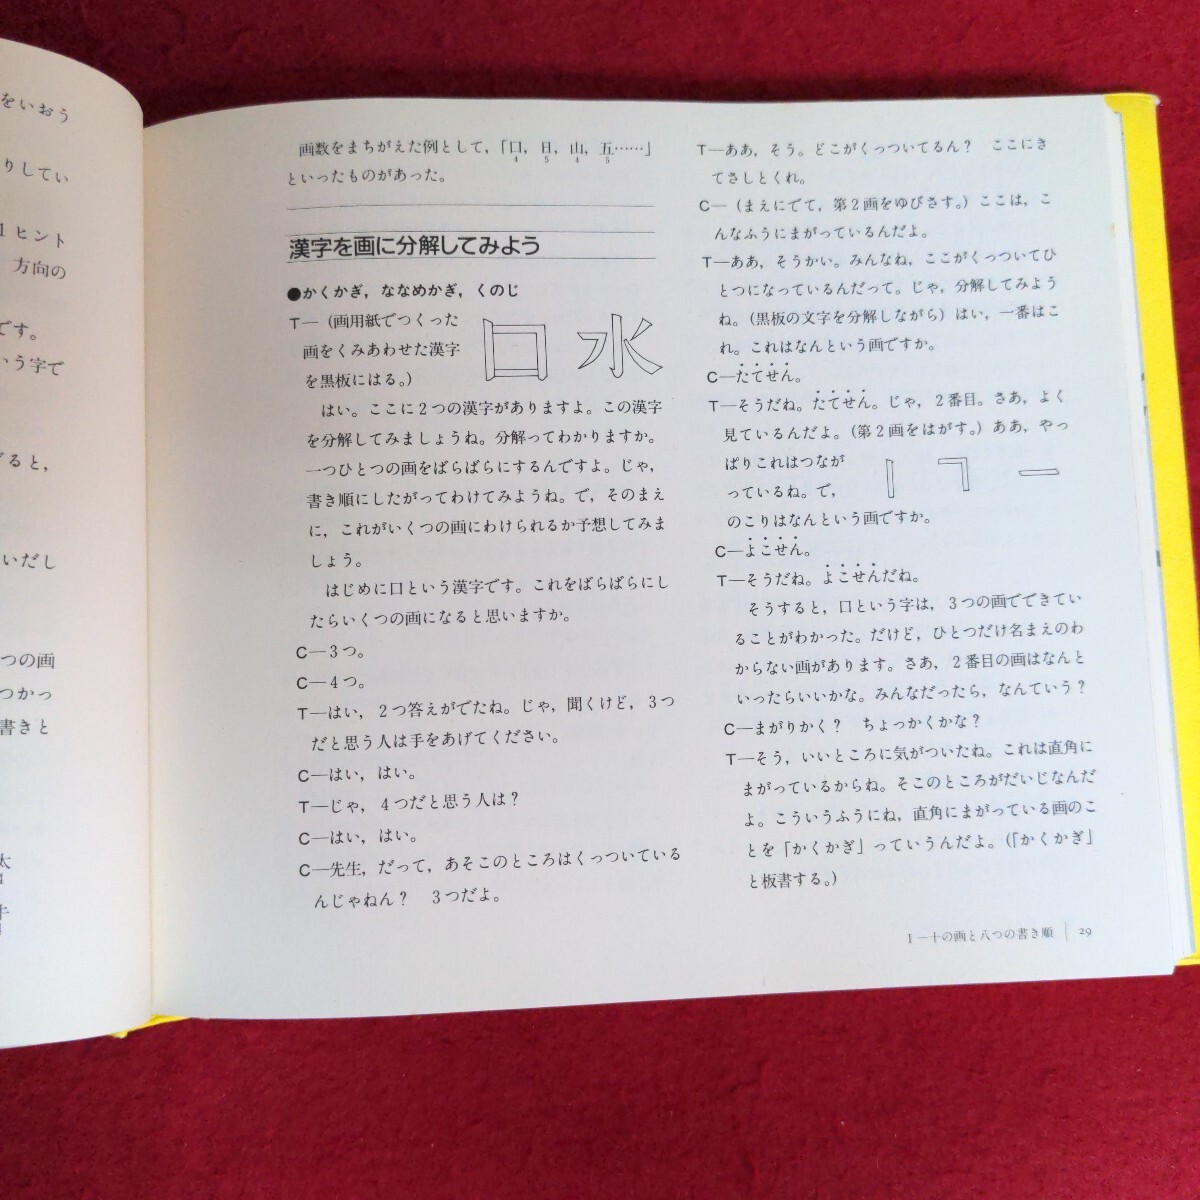 をいおう
りしてい
1ヒント
方向の
です。
いう字で
ると,
いだし
つの画
つかっ
書きと
太
4
牛
4
画数をまちがえた例として,「口, 日, 山, 五……」
4 5 4 5
といったものがあった。
漢字を画に分解してみよう
●かくかぎ, ななめかぎ, くのじ
T—(画用紙でつくった
画をくみあわせた漢字
を黒板にはる。)
口 水
はい。ここに2つの漢字がありますよ。この漢字
を分解してみましょうね。分解ってわかりますか。
一つひとつの画をばらばらにするんですよ。じゃ,
書き順にしたがってわけてみようね。で, そのまえ
に, これがいくつの画にわけられるか予想してみま
しょう。
はじめに口という漢字です。これをばらばらにし
たらいくつの画になると思いますか。
C—3つ。
C—4つ。
T—はい, 2つ答えがでたね。じゃ, 聞くけど, 3つ
だと思う人は手をあげてください。
C—はい, はい。
T—じゃ, 4つだと思う人は?
C—はい, はい。
C—先生, だって, あそこのところはくっついている
んじゃねん? 3つだよ。
T—ああ, そう。どこがくっついてるん? ここにき
てさしとくれ。
C—(まえにでて, 第2画をゆびさす。)ここは, こ
んなふうにまがっているんだよ。
T—ああ, そうかい。みんなね, ここがくっついてひ
とつになっているんだって。じゃ, 分解してみよう
ね。(黒板の文字を分解しながら)はい, 一番はこ
れ。これはなんという画ですか。
C—たてせん。
T—そうだね。たてせん。じゃ, 2番目。さあ, よく
見ているんだよ。(第2画をはがす。)ああ, やっ
ぱりこれはつなが
っているね。で,
のこりはなんという画ですか。
C—よこせん。
T—そうだね。よこせんだね。
そうすると, 口という字は, 3つの画でできてい
ることがわかった。だけど, ひとつだけ名まえのわ
からない画があります。さあ, 2番目の画はなんと
いったらいいかな。みんなだったら, なんていう?
C—まがりかく? ちょっかくかな?
T—そう, いいところに気がついたね。これは直角に
まがっているからね。そこのところがだいじなんだ
よ。こういうふうにね, 直角にまがっている画のこ
とを「かくかぎ」っていうんだよ。(「かくかぎ」
と板書する。)
I—十の画と八つの書き順 | 29